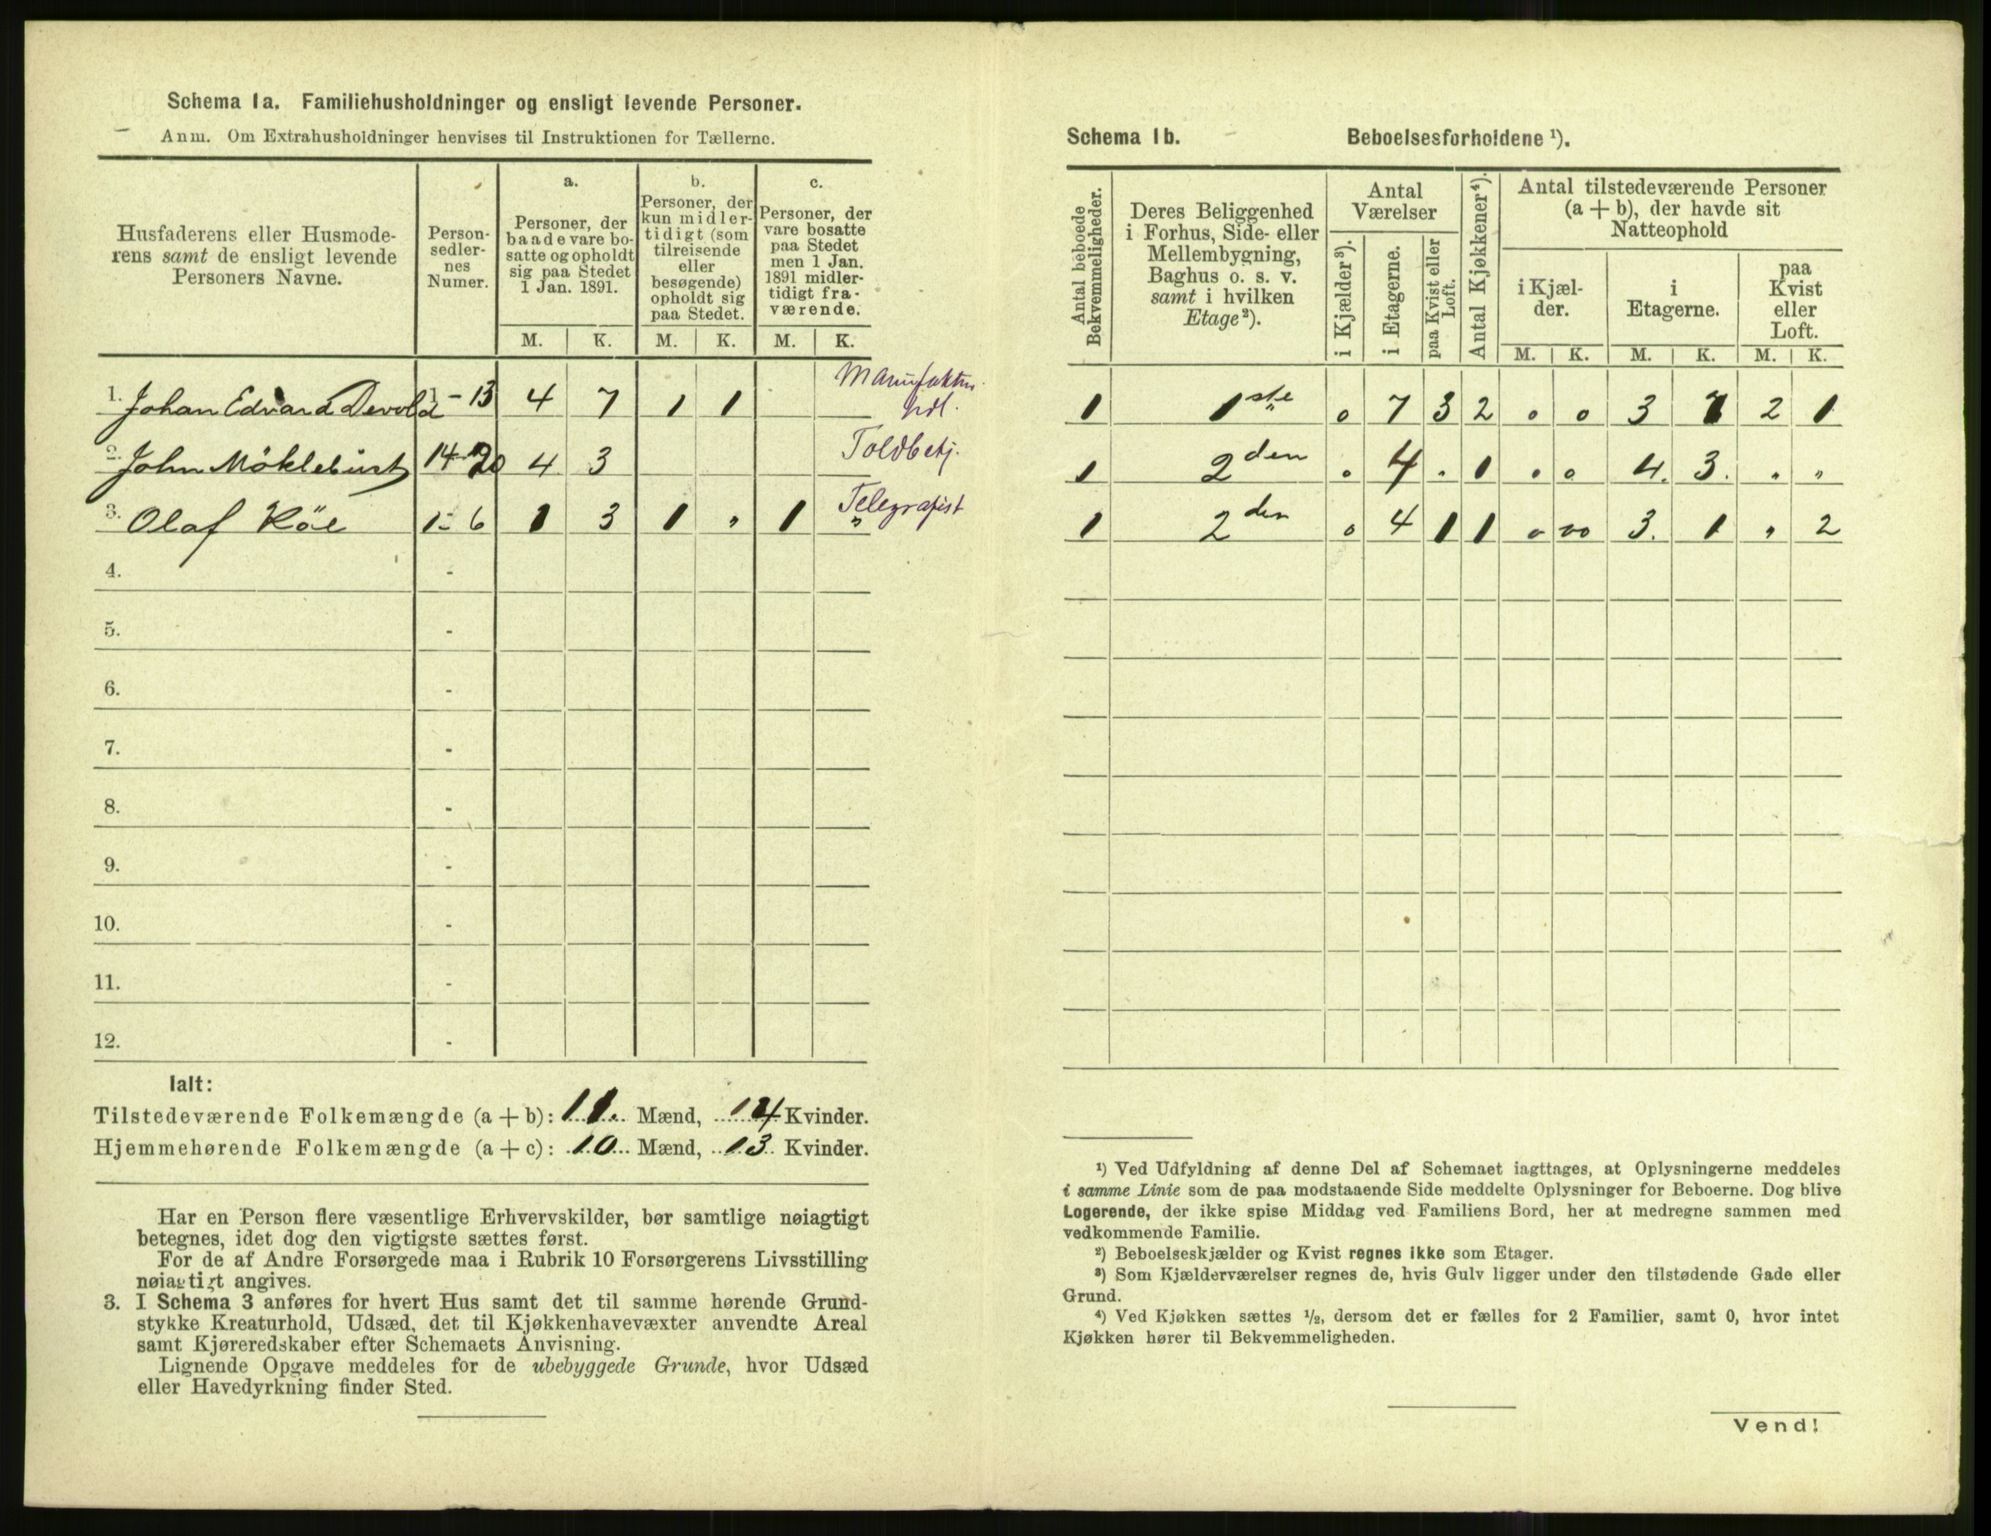 Schema 1a. Familiehusholdninger og ensligt levende Personer.
Anm. Om Extrahusholdninger henvises til Instruktionen for Tællerne.
Husfaderens eller Husmode-
rens samt de ensligt levende
Personers Navne.
Person-
sedler-
nes
Numer.
a.
Personer, der
baade vare bo-
satte og opholdt
sig paa Stedet
1 Jan. 1891.
b.
Personer, der
kun midler-
tidigt (som
tilreisende
eller
besøgende)
opholdt sig
paa Stedet.
c.
Personer, der
vare bosatte
paa Stedet
men 1 Jan.
1891 midler-
tidigt fra-
værende.
M. K. M. K. M. K.
1. Johan Edvard Devold 1 - 13 4 7 1 1 Manufaktur
hdl.
2. John Möklebust 14 - 20 4 3 Toldbetj.
3. Olaf Röe 1 - 6 1 3 1 " 1 " Telegrafist
4. -
5. -
6. -
7. -
8. -
9. -
10. -
11. -
12. -
Ialt:
Tilstedeværende Folkemængde (a + b): 11 Mænd, 14 Kvinder.
Hjemmehørende Folkemængde (a + c): 10 Mænd, 13 Kvinder.
Har en Person flere væsentlige Erhvervskilder, bør samtlige nøiagtigt
betegnes, idet dog den vigtigste sættes først.
For de af Andre Forsørgede maa i Rubrik 10 Forsørgerens Livsstilling
nøiagtigt angives.
3. I Schema 3 anføres for hvert Hus samt det til samme hørende Grund-
stykke Kreaturhold, Udsæd, det til Kjøkkenhavevæxter anvendte Areal
samt Kjøreredskaber efter Schemaets Anvisning.
Lignende Opgave meddeles for de ubebyggede Grunde, hvor Udsæd
eller Havedyrkning finder Sted.
Schema 1b. Beboelsesforholdene ¹).
Antal beboede
Bekvemmeligheder.
Deres Beliggenhed
i Forhus, Side- eller
Mellembygning,
Baghus o. s. v.
samt i hvilken
Etage²).
Antal
Værelser
i Kjælder³).
i Etagerne.
paa Kvist eller
Loft.
Antal Kjøkkener⁴).
Antal tilstedeværende Personer
(a + b), der havde sit
Natteophold
i Kjæl-
der.
i
Etagerne.
paa
Kvist
eller
Loft.
M. K. M. K. M. K.
1 1ste 0 7 3 2 0 0 3 7 2 1
1 2den 0 4 . 1 0 0 4. 3. " "
1 2den 0 4 1 1 0 00 3. 1 " 2
¹) Ved Udfyldning af denne Del af Schemaet iagttages, at Oplysningerne meddeles
i samme Linie som de paa modstaaende Side meddelte Oplysninger for Beboerne. Dog blive
Logerende, der ikke spise Middag ved Familiens Bord, her at medregne sammen med
vedkommende Familie.
²) Beboelseskjælder og Kvist regnes ikke som Etager.
³) Som Kjælderværelser regnes de, hvis Gulv ligger under den tilstødende Gade eller
Grund.
⁴) Ved Kjøkken sættes ½, dersom det er fælles for 2 Familier, samt 0, hvor intet
Kjøkken hører til Bekvemmeligheden.
Vend!